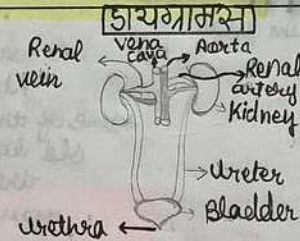 डायग्रामस
Renal vein
vena cava
Aorta
Renal artery
Kidney
Ureter
Bladder
Urethra